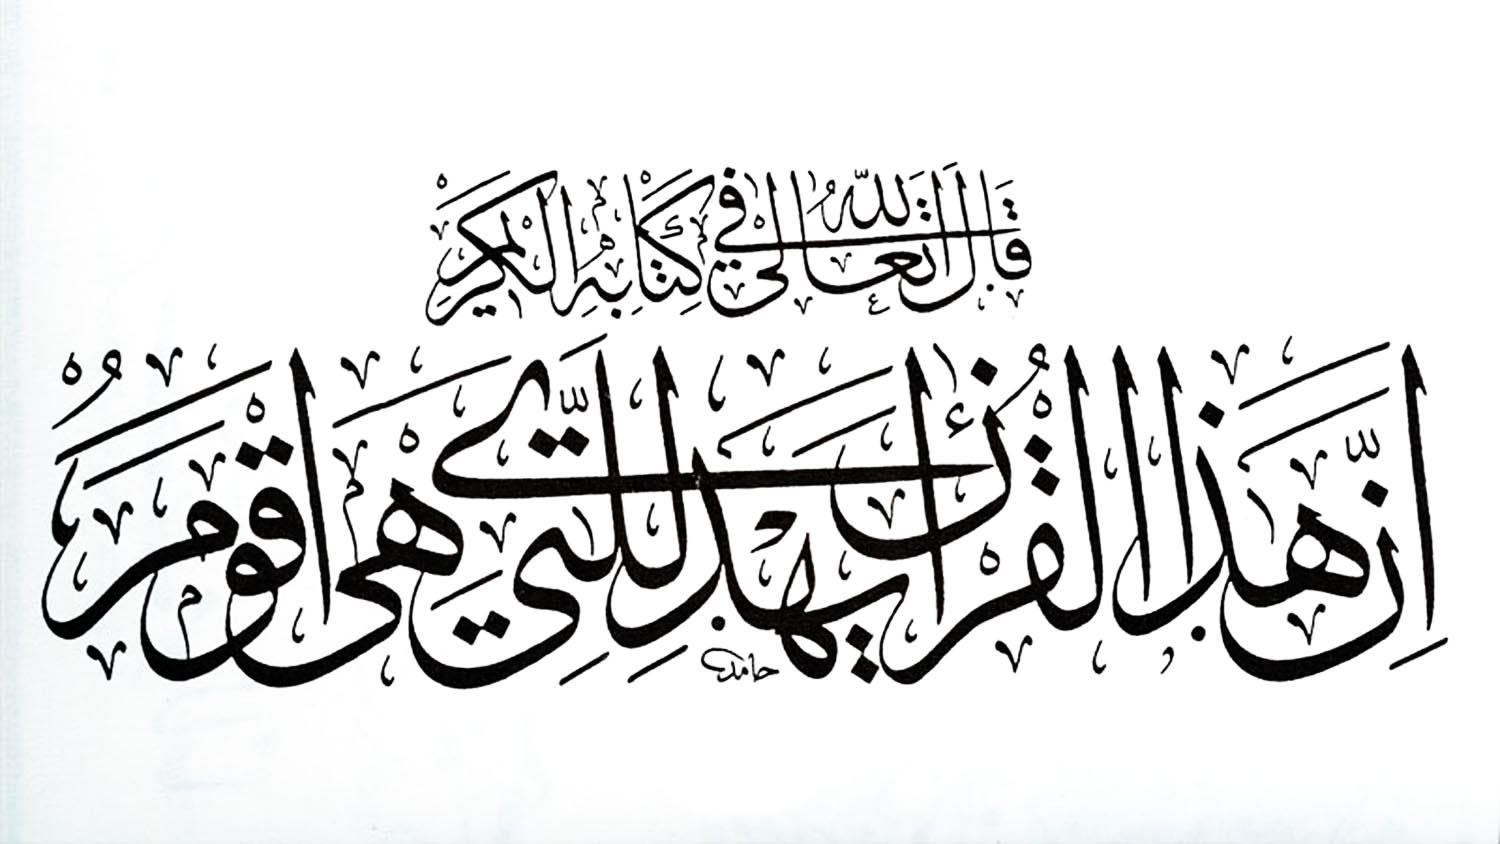 قَالَ اللهُ تَعَالٰى فِي كِتَابِهِ الْكَرِيمْ
اِنَّ هٰذَا الْقُرْاٰنَ يَهْدِي لِلَّتِي هِيَ اَقْوَمُ
حامد